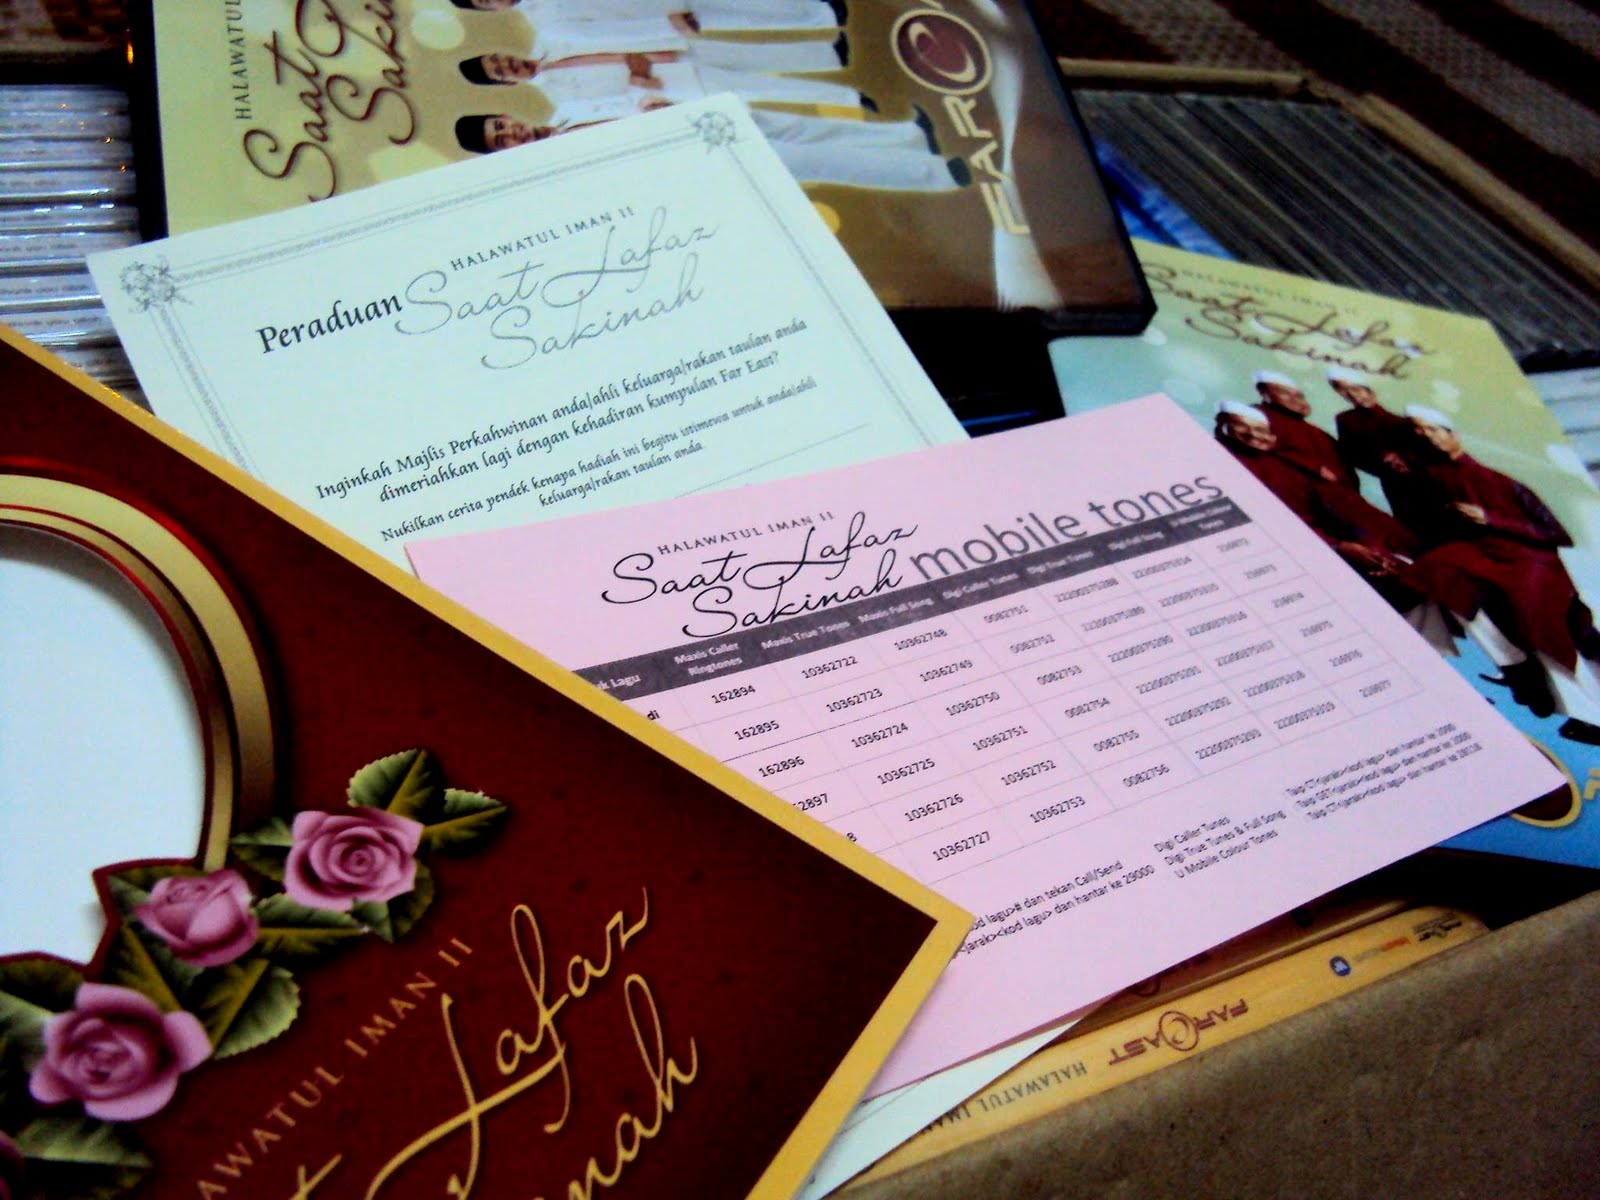 HALAWATUL
Saat
FAR
HALAWATUL IMAN II
Peraduan Saat Lafaz
Sakinah
Inginkah Majlis Perkahwinan anda/ahli keluarga/rakan taulan anda
dimeriahkan lagi dengan kehadiran kumpulan Far East?
Nukilkan cerita pendek kenapa hadiah ini begitu istimewa untuk anda/ahli
keluarga/rakan taulan anda
HALAWATUL IMAN II
Saat Lafaz
Sakinah
HALAWATUL IMAN II
Saat Lafaz
Sakinah mobile tones
Lagu Maxis Caller Ringtones Maxis True Tones Maxis Full Song Digi Caller Tunes Digi True Tunes Digi Full Song
di 162894 10362722 10362748 0082751 22200375288 22200375314 216972
162895 10362723 10362749 0082752 22200375289 22200375315 216973
162896 10362724 10362750 0082753 22200375290 22200375316 216974
2897 10362725 10362751 0082754 22200375291 22200375317 216975
8 10362726 10362752 0082755 22200375292 22200375318 216976
10362727 10362753 0082756 22200375293 22200375319 216977
od lagu># dan tekan Call/Send
jarak><kod lagu> dan hantar ke 29000
Digi Caller Tunes
Digi True Tunes & Full Song
U Mobile Colour Tones
Taip CT<jarak><kod lagu> dan hantar ke
Taip GET<jarak><kod lagu> dan hantar ke
Taip CT<jarak><kod lagu> dan hantar ke 28118
AWATUL IMAN II
Lafaz
nah
FAR EAST
HALAWATUL IM